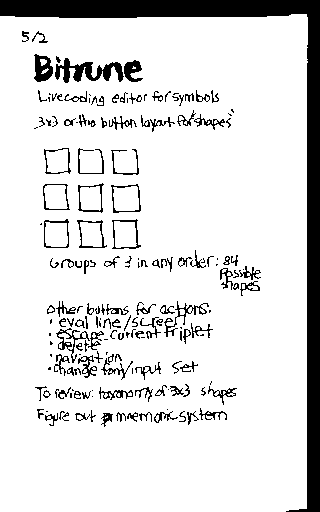 5/2
Bitrune
Livecoding editor for symbols
3x3 ortho button layout for "shapes"
Groups of 3 in any order: 84
Possible
shapes
Other buttons for actions:
• eval line/screen
• escape current triplet
• delete
• navigation
• change font/input set
To review: taxonomy of 3x3 shapes
Figure out mnemonic system